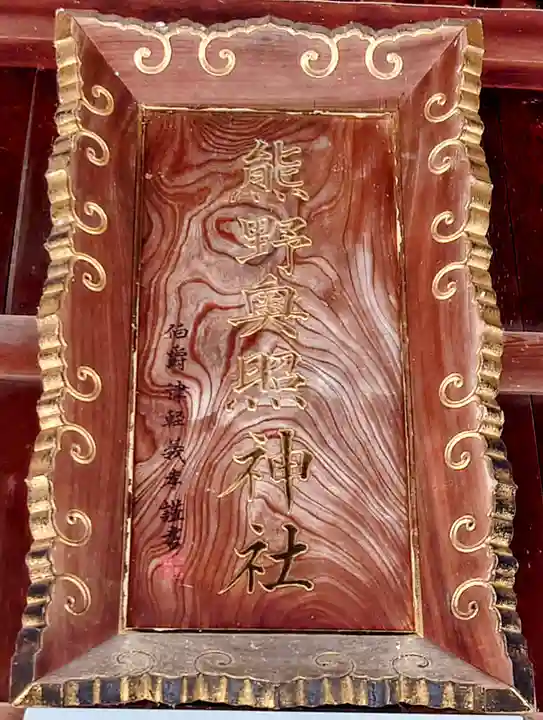 熊野奥照神社
伯爵津軽義孝謹書